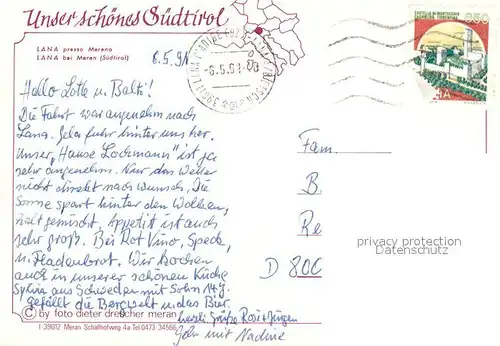 Unser schönes Südtirol
LANA presso Merano
LANA bei Meran (Südtirol)
8.5.91
-8.5.91-00
850
Hallo Lotte u. Balti!
Die Fahrt war angenehm nach
Lana. fuhr hinter uns her.
Unser "Hause Lochmann" ist ja
sehr angenehm. Nur das Wetter
nicht direkt nach Wunsch. Die
Sonne spart hinter den Wolken,
halt gemischt. Appetit ist auch
sehr groß. Bei Rot Vino, Speck,
u. Fladenbrot. Wir kochen
auch in unserer schönen Küche
Sylvia aus Schweden mit Sohn 14 J.
gefällt die Bergwelt u. das Bier.
Fam.
B.
Re
D 800
privacy protection
Datenschutz
© by foto dieter drescher meran
I 39012 Meran Schafhofweg 4a Tel 0473 34566
Grüße Rosi + Jürgen
mit Nadine